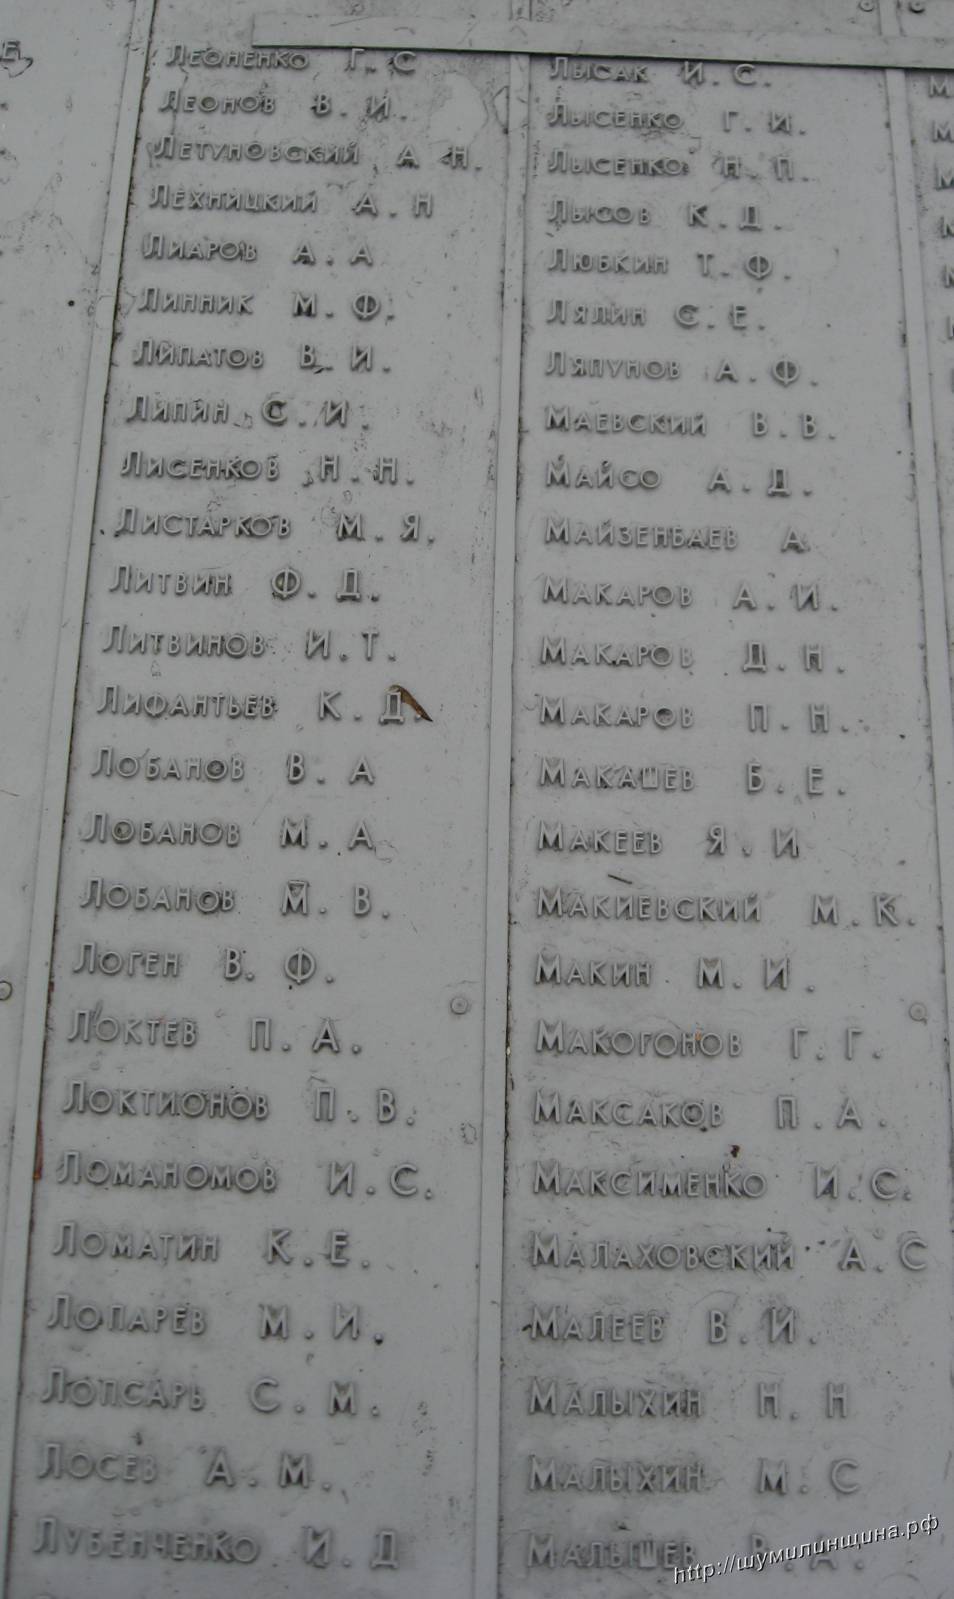 Леоненко Г.С
Леонов В.И.
Летуновский А Н.
Лехницкий А.Н
Лиаров А.А
Линник М.Ф.
Липатов В.И.
Липин С.И.
Лисенков Н.Н.
Листарков М.Я.
Литвин Ф.Д.
Литвинов И.Т.
Лифантьев К.Д.
Лобанов В.А
Лобанов М.А
Лобанов М.В.
Логен В.Ф.
Локтев П.А.
Локтионов П.В.
Ломаномов И.С.
Ломатин К.Е.
Лопарев М.И.
Лопсарь С.М.
Лосев А.М.
Лубенченко И.Д
Лысак И.С.
Лысенко Г.И.
Лысенко Н.П.
Лысов К.Д.
Любкин Т.Ф.
Лялин С.Е.
Ляпунов А.Ф.
Маевский В.В.
Майсо А.Д.
Майзенбаев А.
Макаров А.И.
Макаров Д.Н.
Макаров П.Н.
Макашев Б.Е.
Макеев Я.И
Макиевский М.К.
Макин М.И.
Макогонов Г.Г.
Максаков П.А.
Максименко И.С.
Малаховский А.С
Малеев В.И.
Малыхин Н.Н
Малыхин М.С
Малышев В.А.
http://шумилинщина.рф